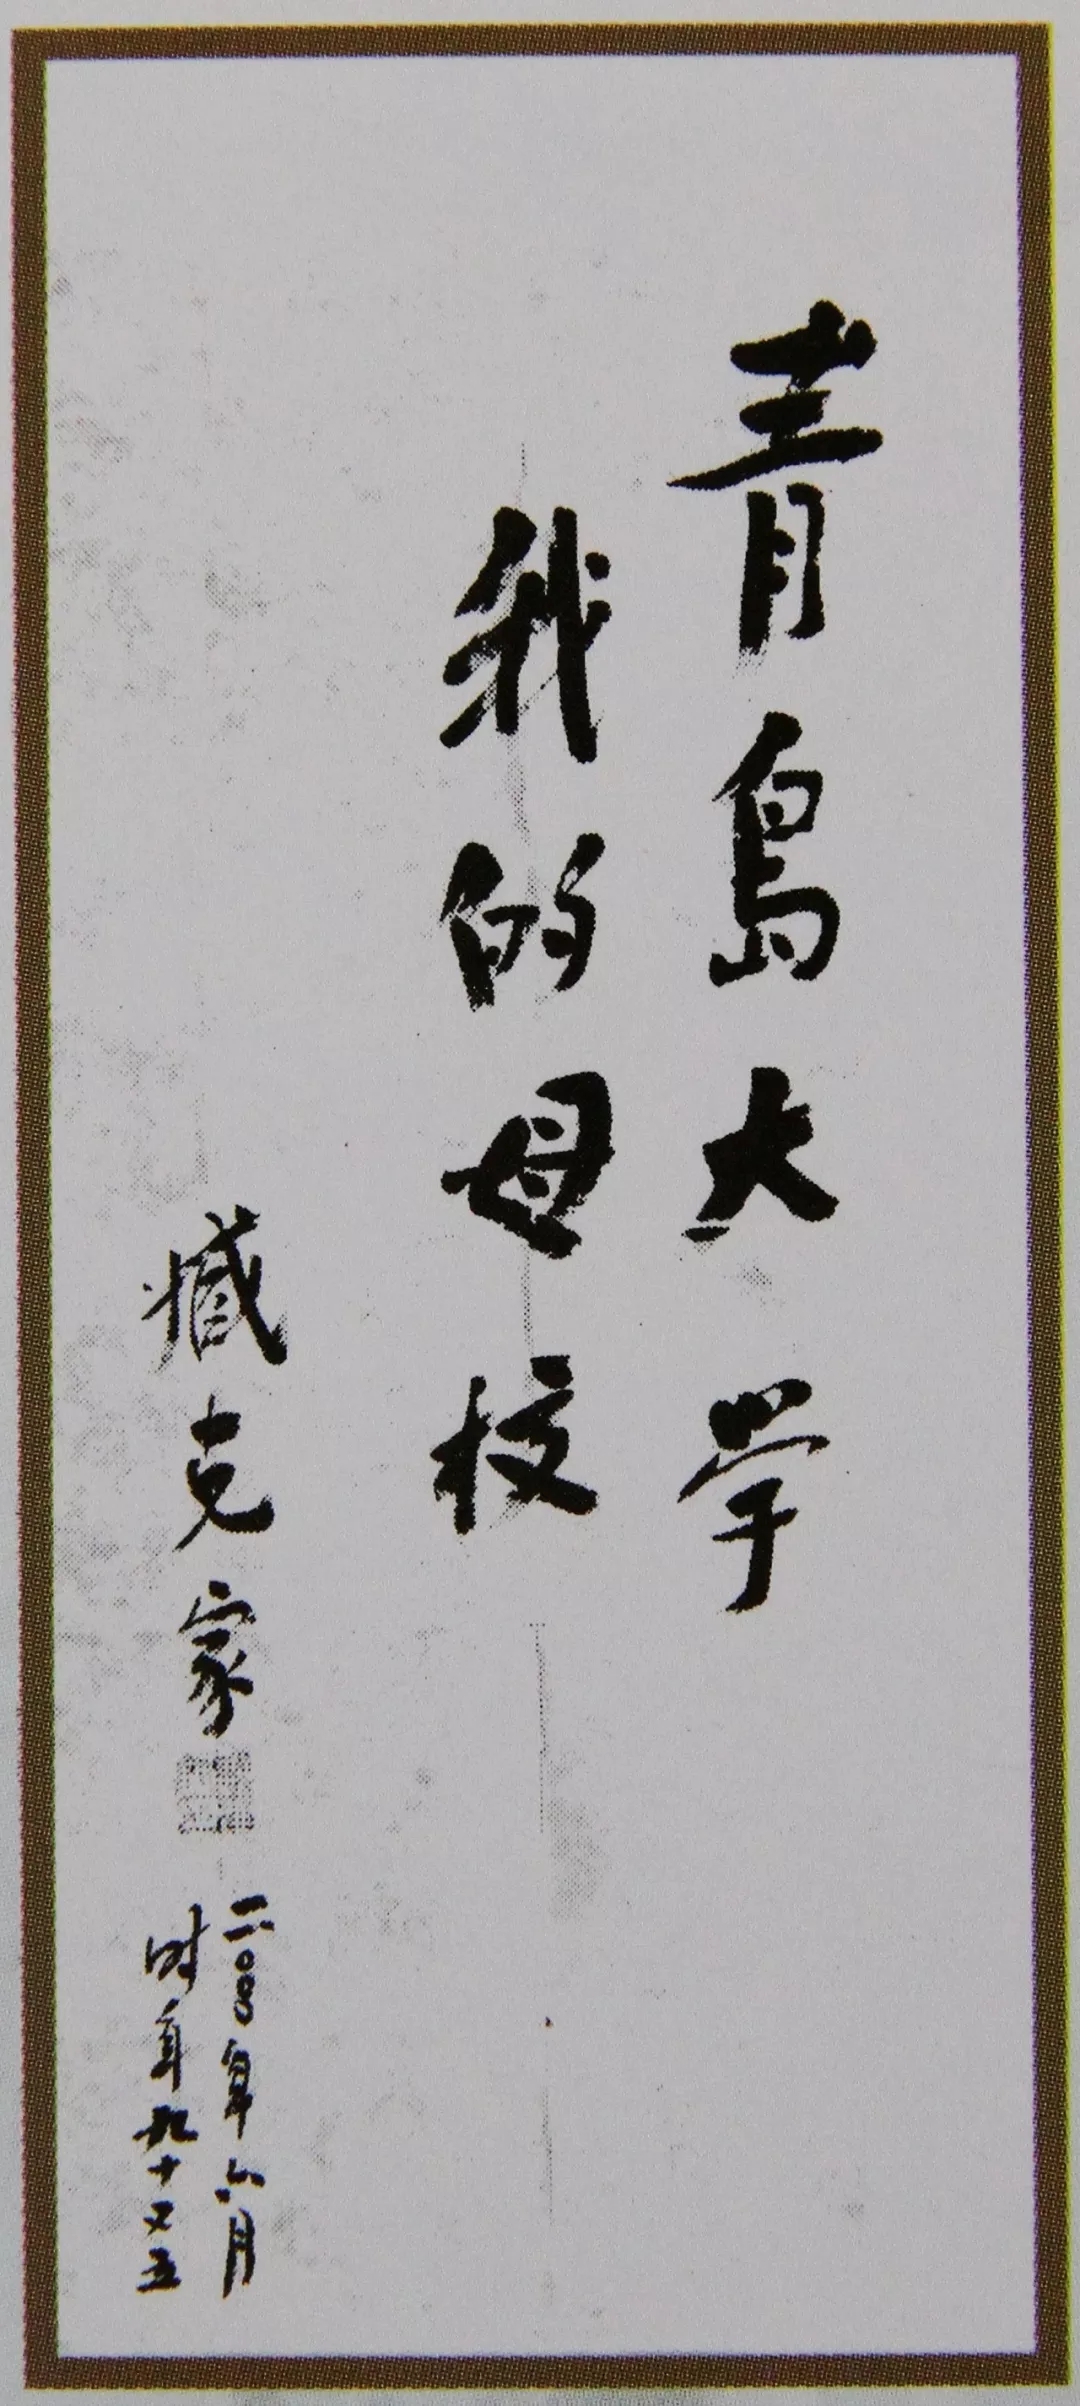 青島大学
我的母校
臧克家
二〇〇〇年六月
时年九十又五